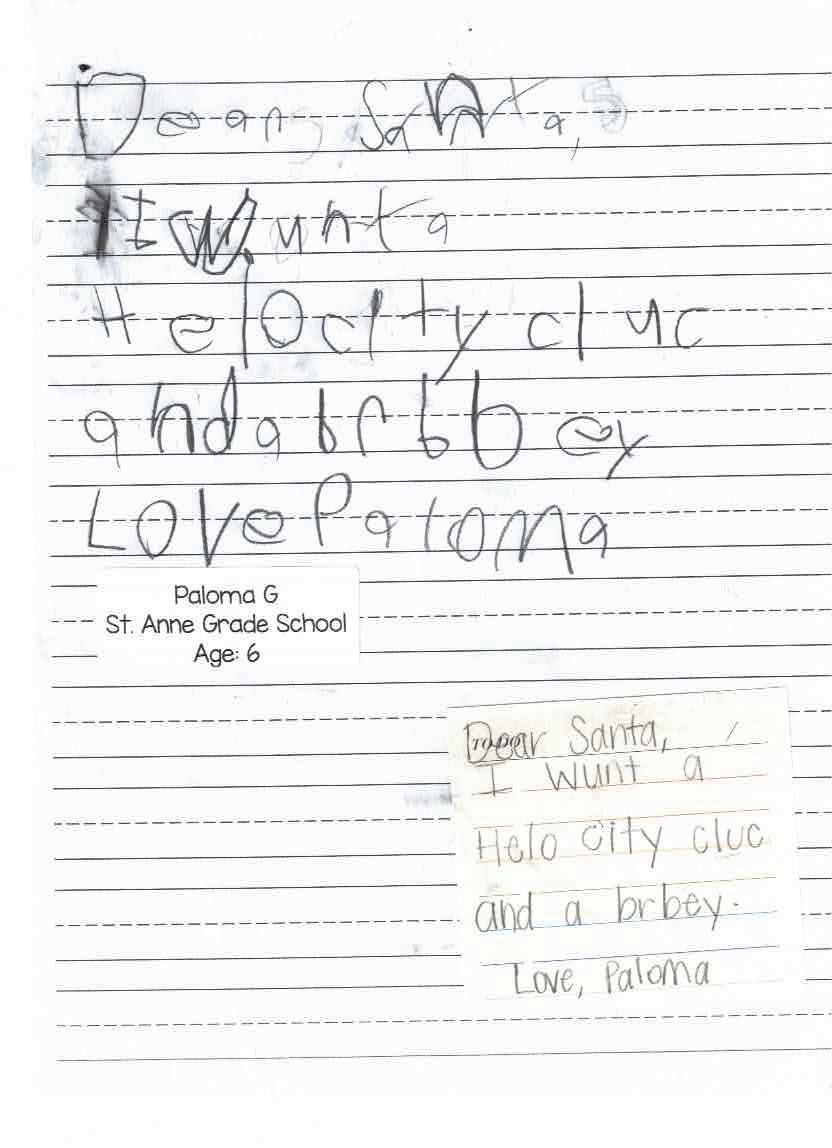 Dear Santa,
I Wunt a
Helo city cluc
and a brbbey
Love Paloma
Paloma G
St. Anne Grade School
Age: 6
Dear Santa,
I wunt a
Helo city cluc
and a brbey.
Love, Paloma